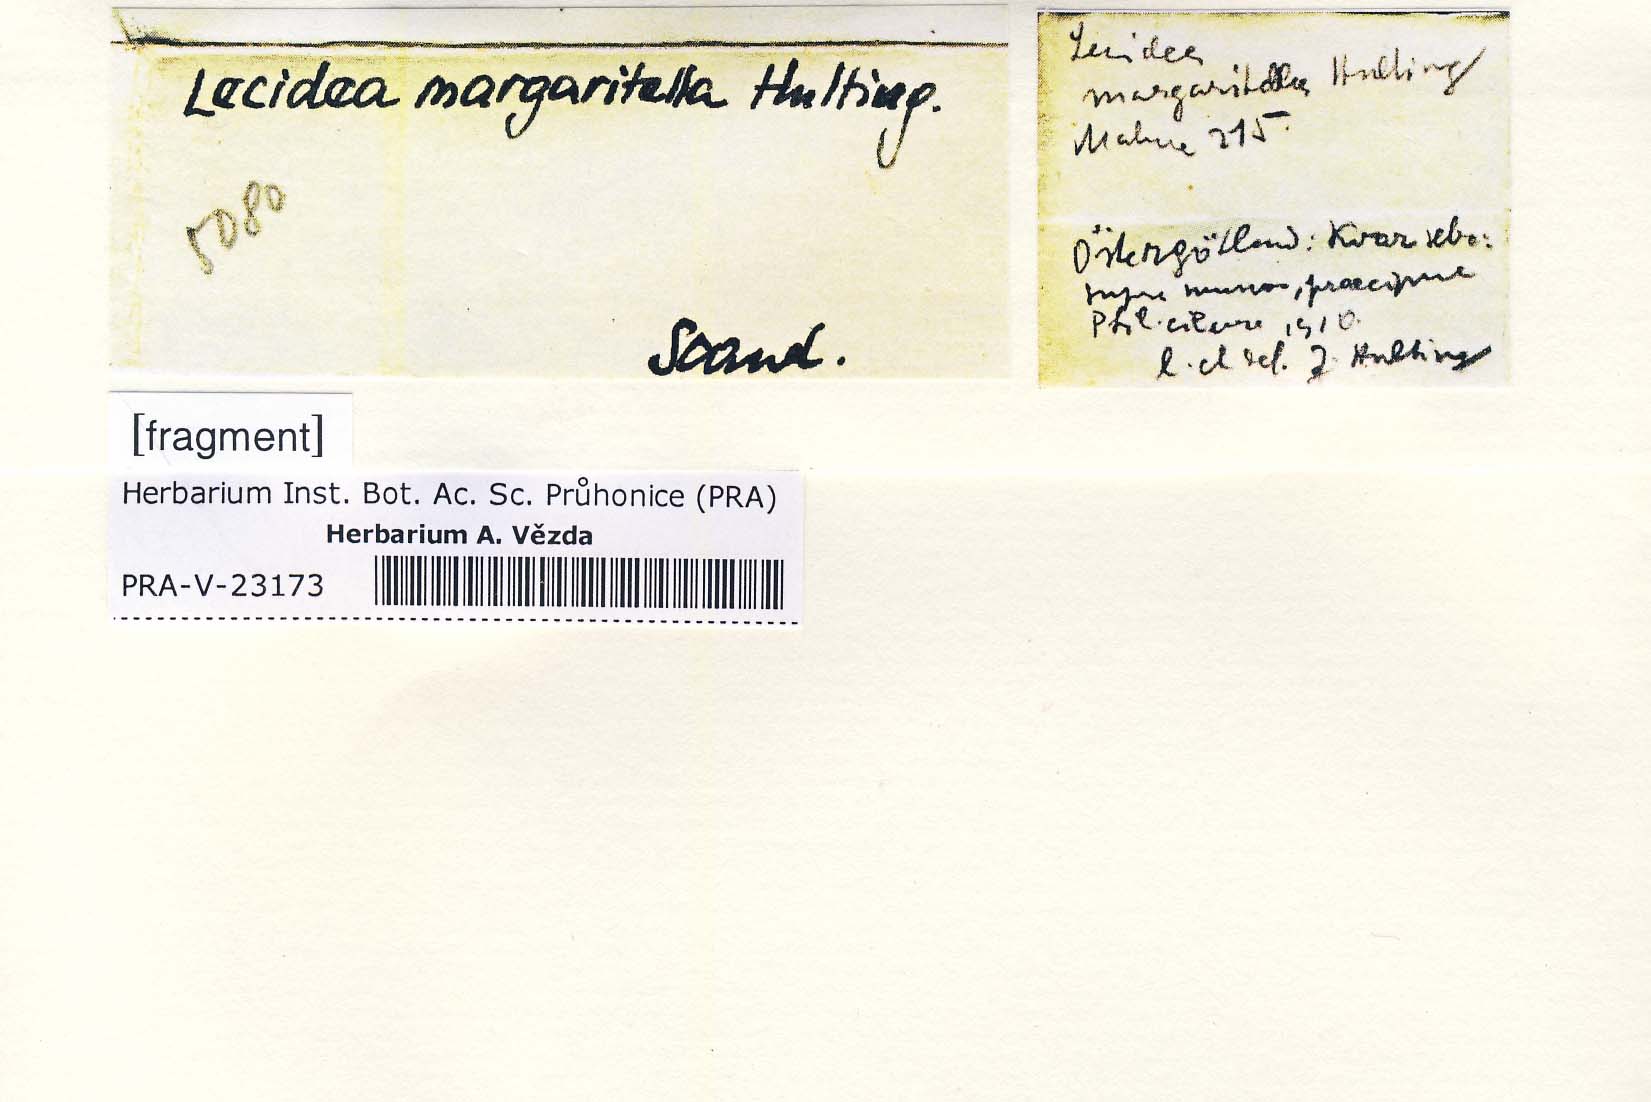 Lecidea margaritella Hulting.
5080
Scand.
Lecidea
margaritella Hulting
Malme 215.
Östergötland: Kvarsebo:
supra muscos, praecipue
Ptil. ciliare, 1910.
l. et det. J. Hulting
[fragment]
Herbarium Inst. Bot. Ac. Sc. Průhonice (PRA)
Herbarium A. Vězda
PRA-V-23173